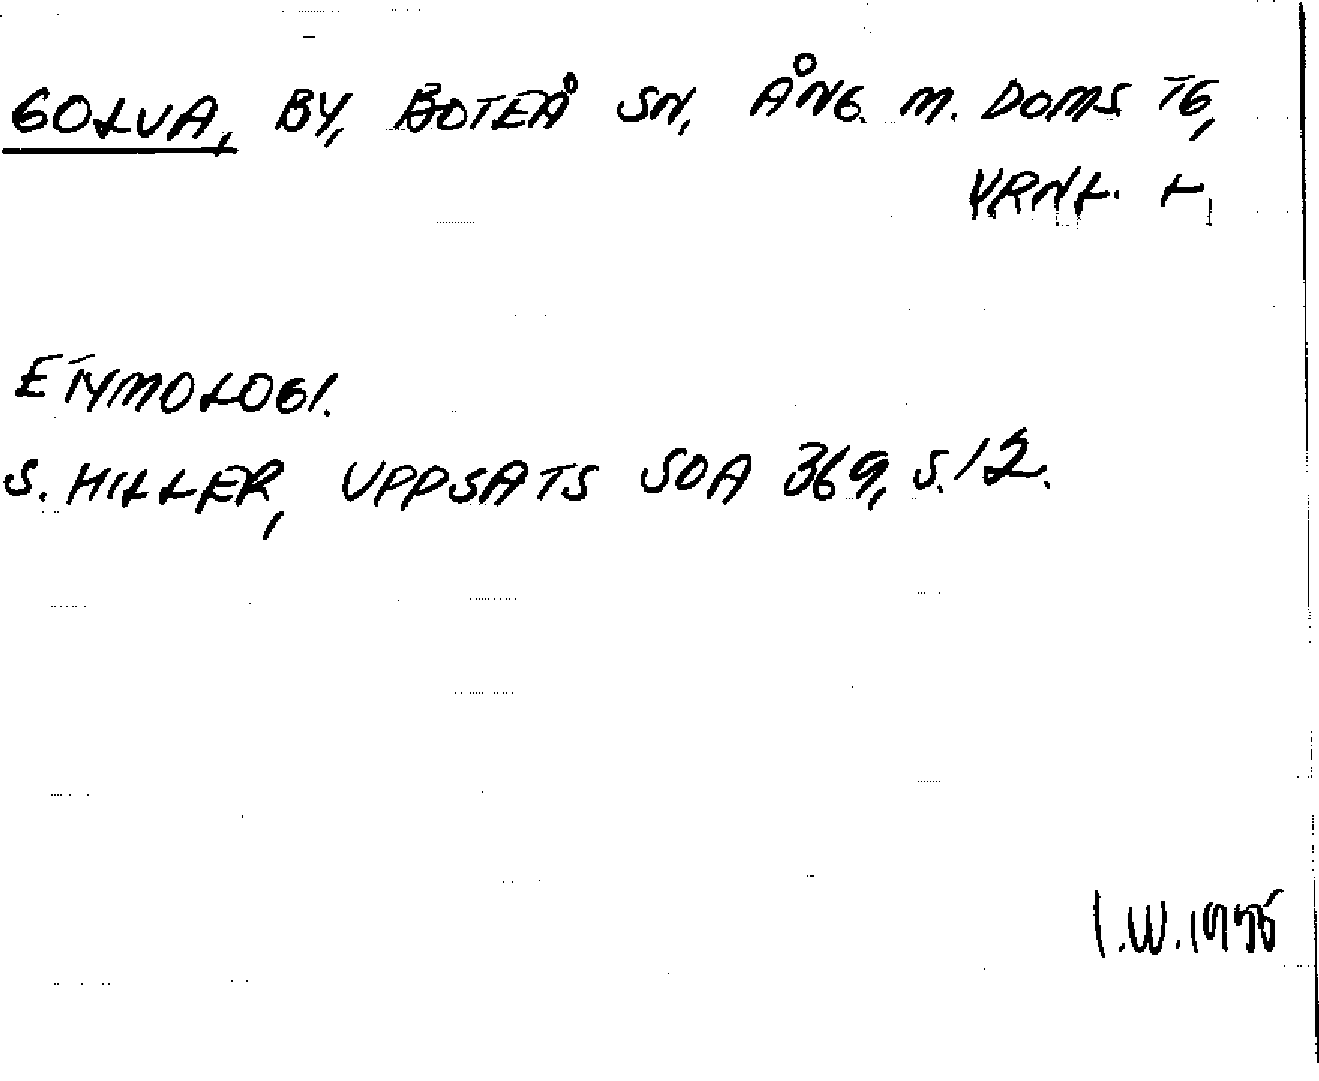 GOLVA, BY, BOTEÅ SN, ÅNG. M. DOMS. TG,
VRNL. L.
ETYMOLOGI.
S. HILLER, UPPSATS SOA 369, S. 12.
I.W. 1975